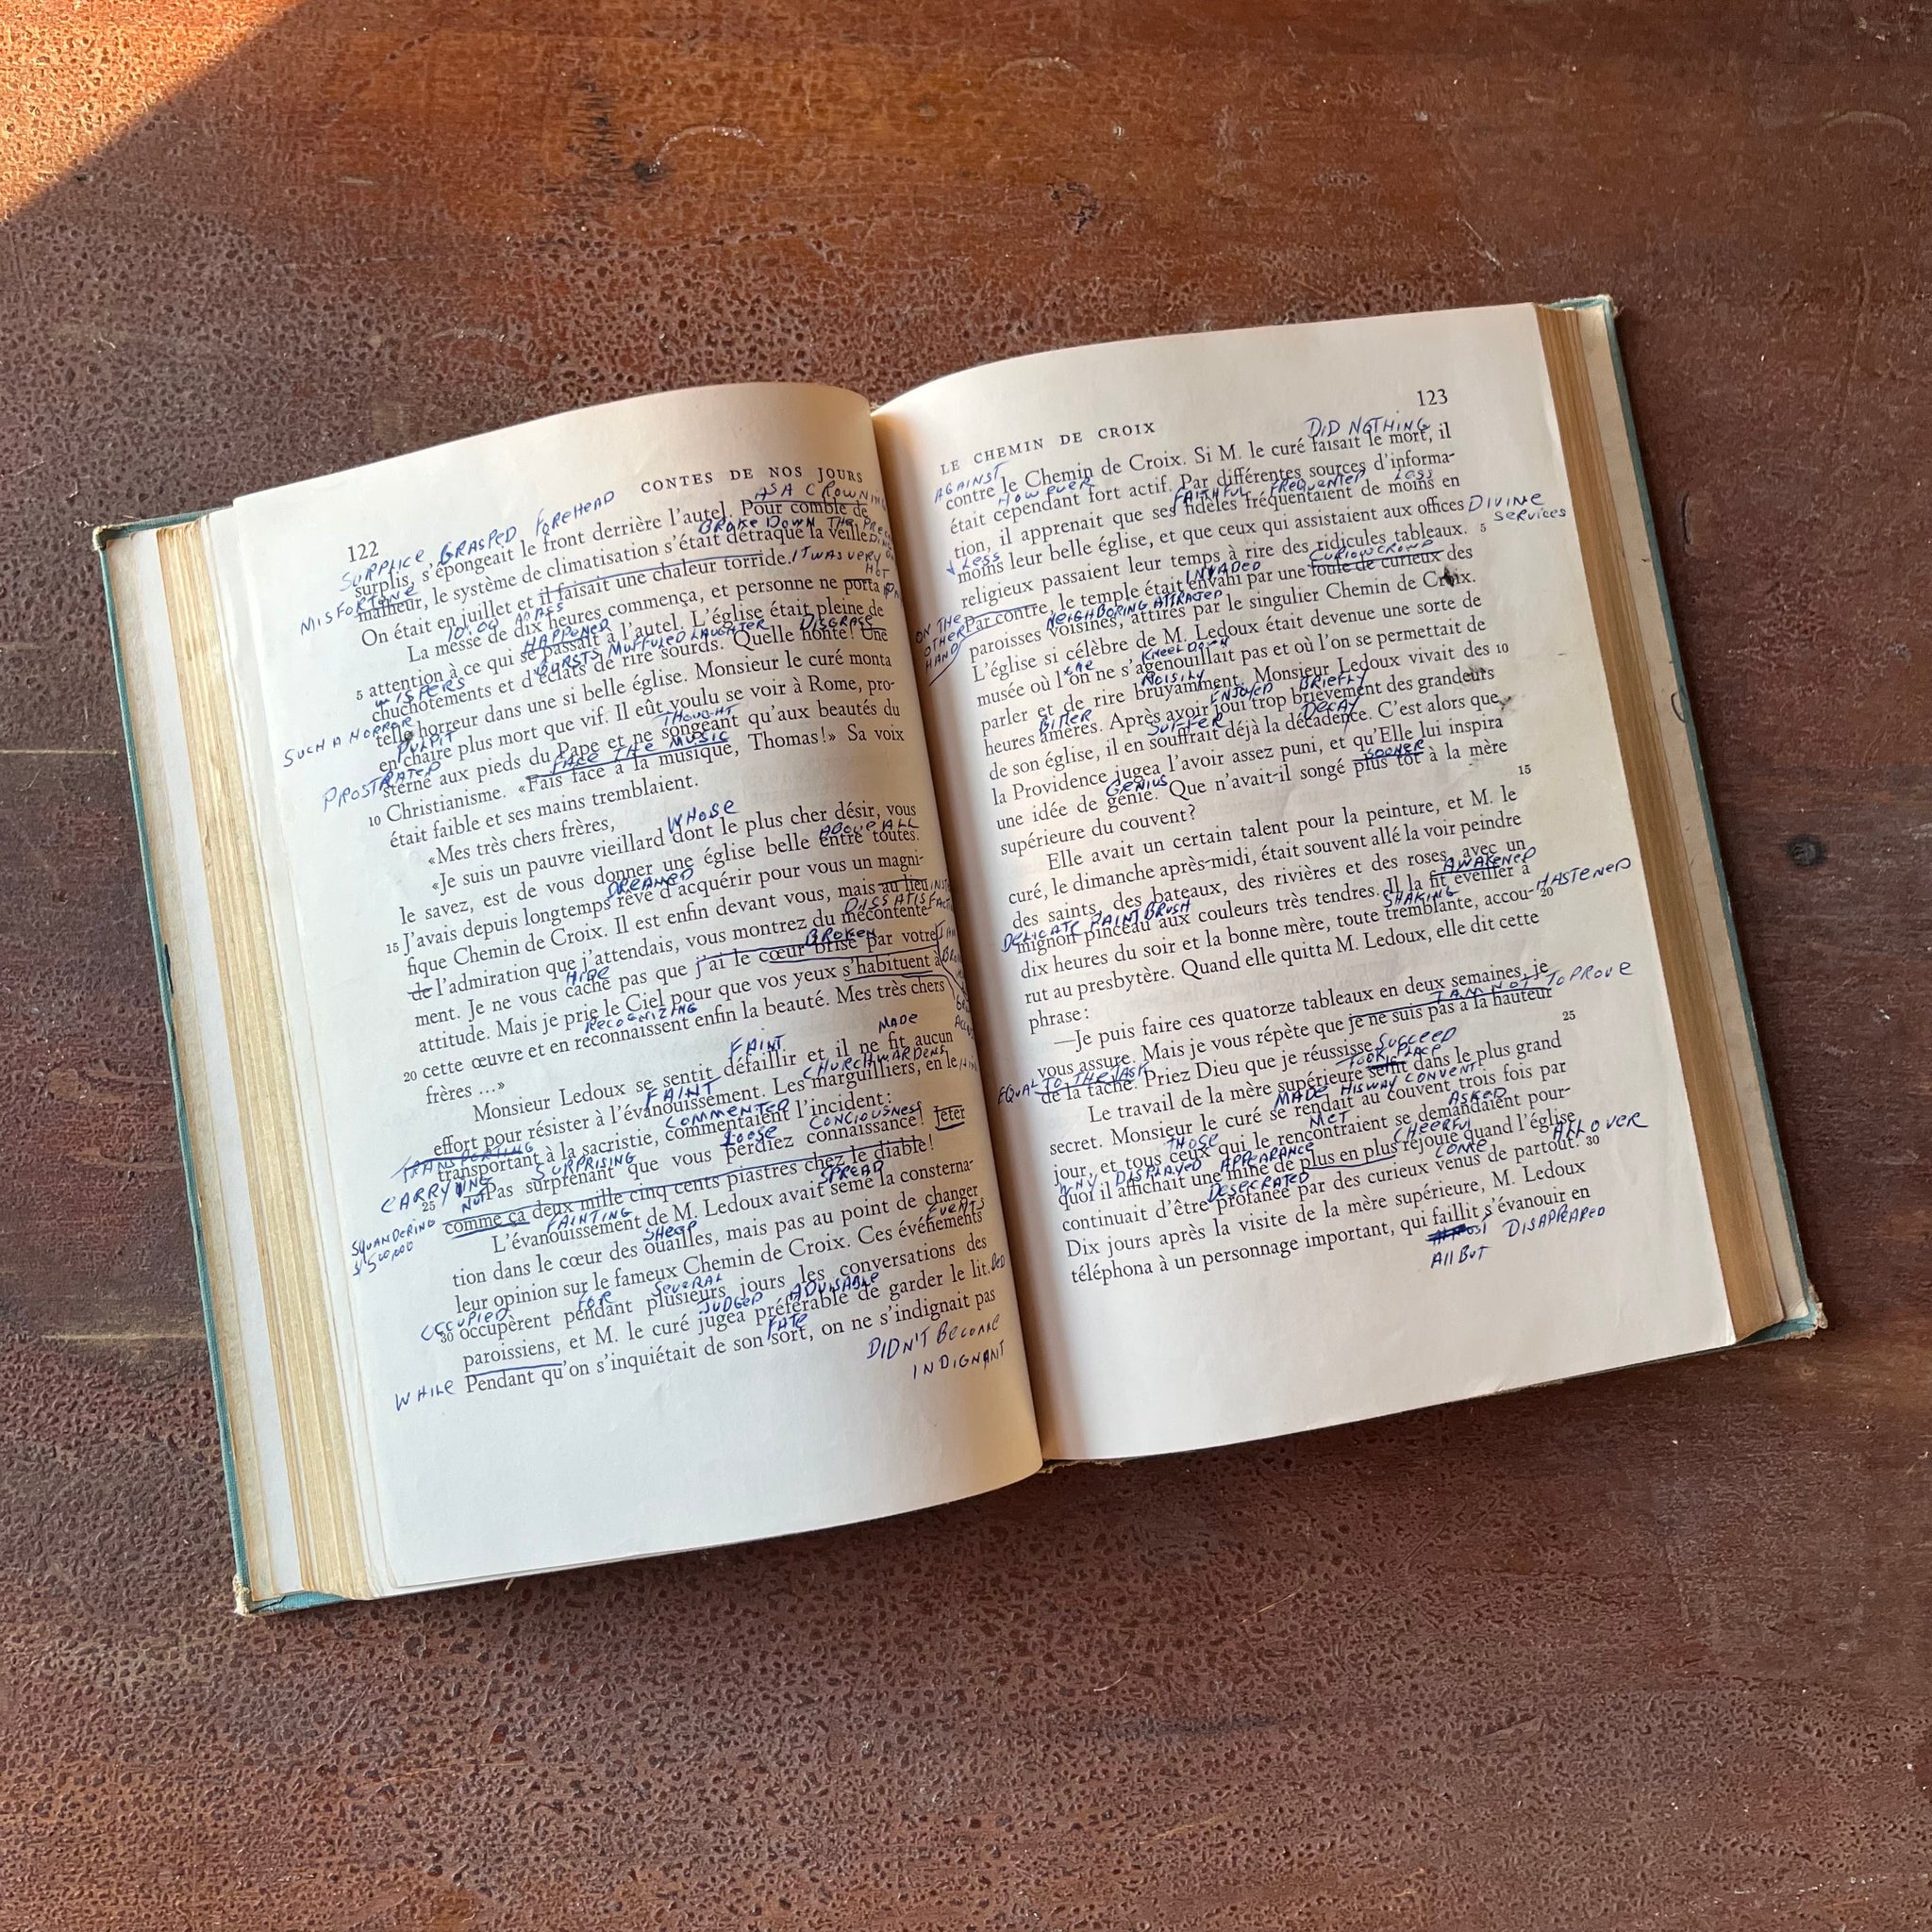 122
CONTES DE NOS JOURS
SURPLICE, GRASPED FOREHEAD
AS A CROWNING
surplis, s'épongeait le front derrière l'autel. Pour comble de
MISFORTUNE
BROKE DOWN THE
malheur, le système de climatisation s'était détraqué la veille.
IT WAS VERY HOT
On était en juillet et il faisait une chaleur torride.
10:00 MASS
La messe de dix heures commença, et personne ne porta
HAPPENED
5 attention à ce qui se passait à l'autel. L'église était pleine de
WISPERS BURSTS MUFFULED LAUGHTER DISGRACE
chuchotements et d'éclats de rire sourds. Quelle honte! Une
SUCH A HORROR
telle horreur dans une si belle église. Monsieur le curé monta
PULPIT
en chaire plus mort que vif. Il eût voulu se voir à Rome, pro-
PROSTRATED THOUGHT
sterné aux pieds du Pape et ne songeant qu'aux beautés du
FACE THE MUSIC
10 Christianisme. «Fais face à la musique, Thomas!» Sa voix
était faible et ses mains tremblaient.
«Mes très chers frères,
WHOSE
«Je suis un pauvre vieillard dont le plus cher désir, vous
ABOVE ALL
le savez, est de vous donner une église belle entre toutes.
DREAMED
15 J'avais depuis longtemps rêvé d'acquérir pour vous un magni-
fique Chemin de Croix. Il est enfin devant vous, mais au lieu
de l'admiration que j'attendais, vous montrez du mécontente-
HIDE BROKEN
ment. Je ne vous cache pas que j'ai le cœur brisé par votre
attitude. Mais je prie le Ciel pour que vos yeux s'habituent à
RECOGNIZING
20 cette œuvre et en reconnaissent enfin la beauté. Mes très chers
frères ...»
FAINT MADE
Monsieur Ledoux se sentit défaillir et il ne fit aucun
FAINT CHURCHWARDENS
effort pour résister à l'évanouissement. Les marguilliers, en le
TRANSPORTING COMMENTED
transportant à la sacristie, commentaient l'incident:
CARRYING NOT SURPRISING LOOSE CONCIOUSNESS
25 —Pas surprenant que vous perdiez connaissance! Jeter
SQUANDERING
comme ça deux mille cinq cents piastres chez le diable!
FAINTING SPREAD
L'évanouissement de M. Ledoux avait semé la consterna-
SHEEP
tion dans le cœur des ouailles, mais pas au point de changer
EVENTS
leur opinion sur le fameux Chemin de Croix. Ces événements
OCCUPIED FOR SEVERAL
30 occupèrent pendant plusieurs jours les conversations des
JUDGED ADVISABLE BED
paroissiens, et M. le curé jugea préférable de garder le lit.
WHILE FATE
Pendant qu'on s'inquiétait de son sort, on ne s'indignait pas
DIDN'T BECOME
INDIGNANT
LE CHEMIN DE CROIX
123
AGAINST DID NOTHING
contre le Chemin de Croix. Si M. le curé faisait le mort, il
HOWEVER
était cependant fort actif. Par différentes sources d'informa-
FAITHFUL FREQUENTED LESS
tion, il apprenait que ses fidèles fréquentaient de moins en
LESS DIVINE SERVICES
moins leur belle église, et que ceux qui assistaient aux offices
religieux passaient leur temps à rire des ridicules tableaux. 5
ON THE OTHER HAND INVADED CURIOUS CROWD
Par contre, le temple était envahi par une foule de curieux des
NEIGHBORING ATTRACTED
paroisses voisines, attirés par le singulier Chemin de Croix.
L'église si célèbre de M. Ledoux était devenue une sorte de
ONE KNEEL DOWN
musée où l'on ne s'agenouillait pas et où l'on se permettait de
NOISILY
parler et de rire bruyamment. Monsieur Ledoux vivait des 10
BITTER ENJOYED BRIEFLY
heures amères. Après avoir joui trop brièvement des grandeurs
SUFFER DECAY
de son église, il en souffrait déjà la décadence. C'est alors que
la Providence jugea l'avoir assez puni, et qu'Elle lui inspira
GENIUS SOONER
une idée de génie. Que n'avait-il songé plus tôt à la mère
supérieure du couvent? 15
Elle avait un certain talent pour la peinture, et M. le
curé, le dimanche après-midi, était souvent allé la voir peindre
des saints, des bateaux, des rivières et des roses, avec un
DELICATE PAINTBRUSH AWAKENED
mignon pinceau aux couleurs très tendres. Il la fit éveiller à
SHAKING HASTENED
dix heures du soir et la bonne mère, toute tremblante, accou- 20
rut au presbytère. Quand elle quitta M. Ledoux, elle dit cette
phrase:
—Je puis faire ces quatorze tableaux en deux semaines, je
I AM NOT TO PROVE
vous assure. Mais je vous répète que je ne suis pas à la hauteur
EQUAL TO THE TASK SUCCEED
de la tâche. Priez Dieu que je réussisse. 25
TOOK PLACE
Le travail de la mère supérieure se fit dans le plus grand
MADE HIS WAY CONVENT
secret. Monsieur le curé se rendait au couvent trois fois par
THOSE MET ASKED
jour, et tous ceux qui le rencontraient se demandaient pour-
WHY DISPLAYED APPEARANCE CHEERFUL
quoi il affichait une mine de plus en plus réjouie quand l'église
DESECRATED COME ALL OVER
continuait d'être profanée par des curieux venus de partout. 30
Dix jours après la visite de la mère supérieure, M. Ledoux
téléphona à un personnage important, qui faillit s'évanouir en
ALL BUT DISAPPEARED